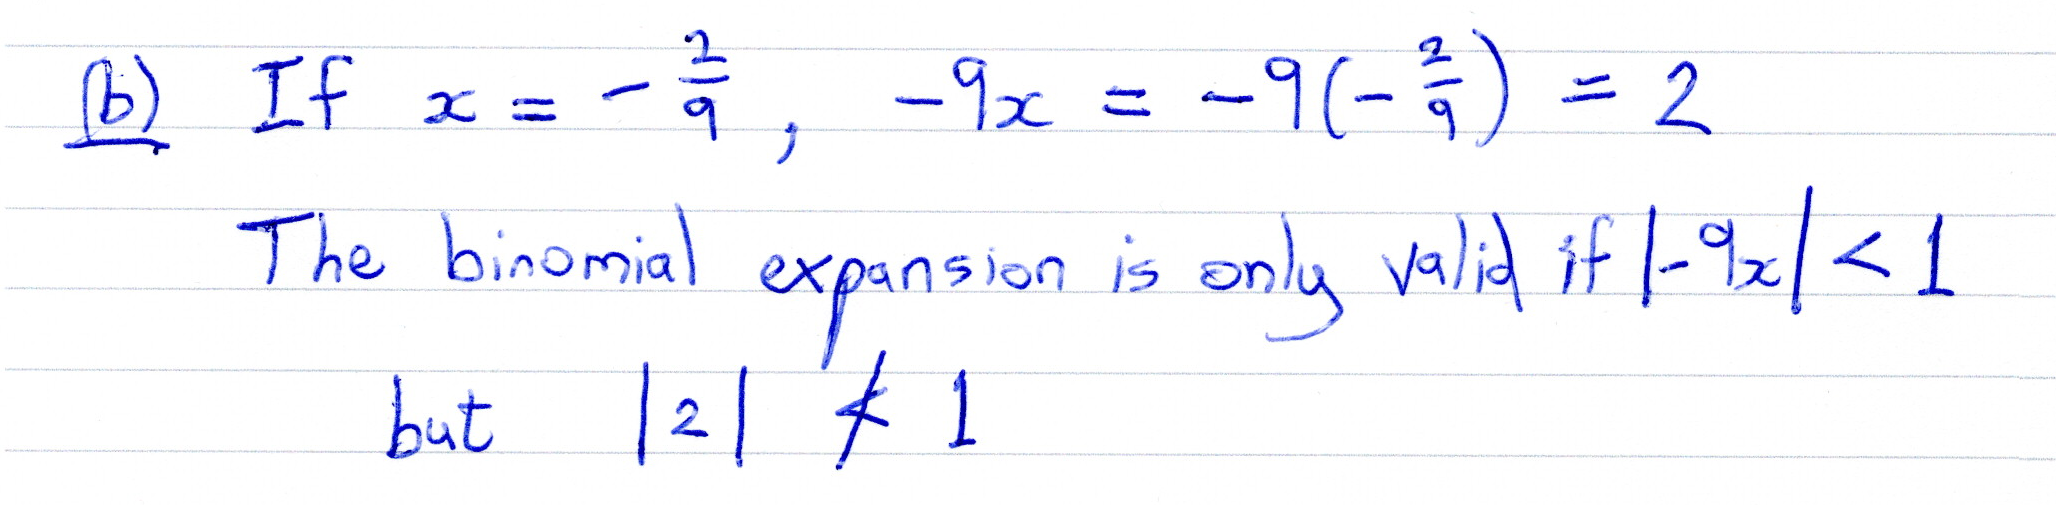 (b) If x = -2/9, -9x = -9(-2/9) = 2
The binomial expansion is only valid if |-9x| < 1
but |2| ≮ 1